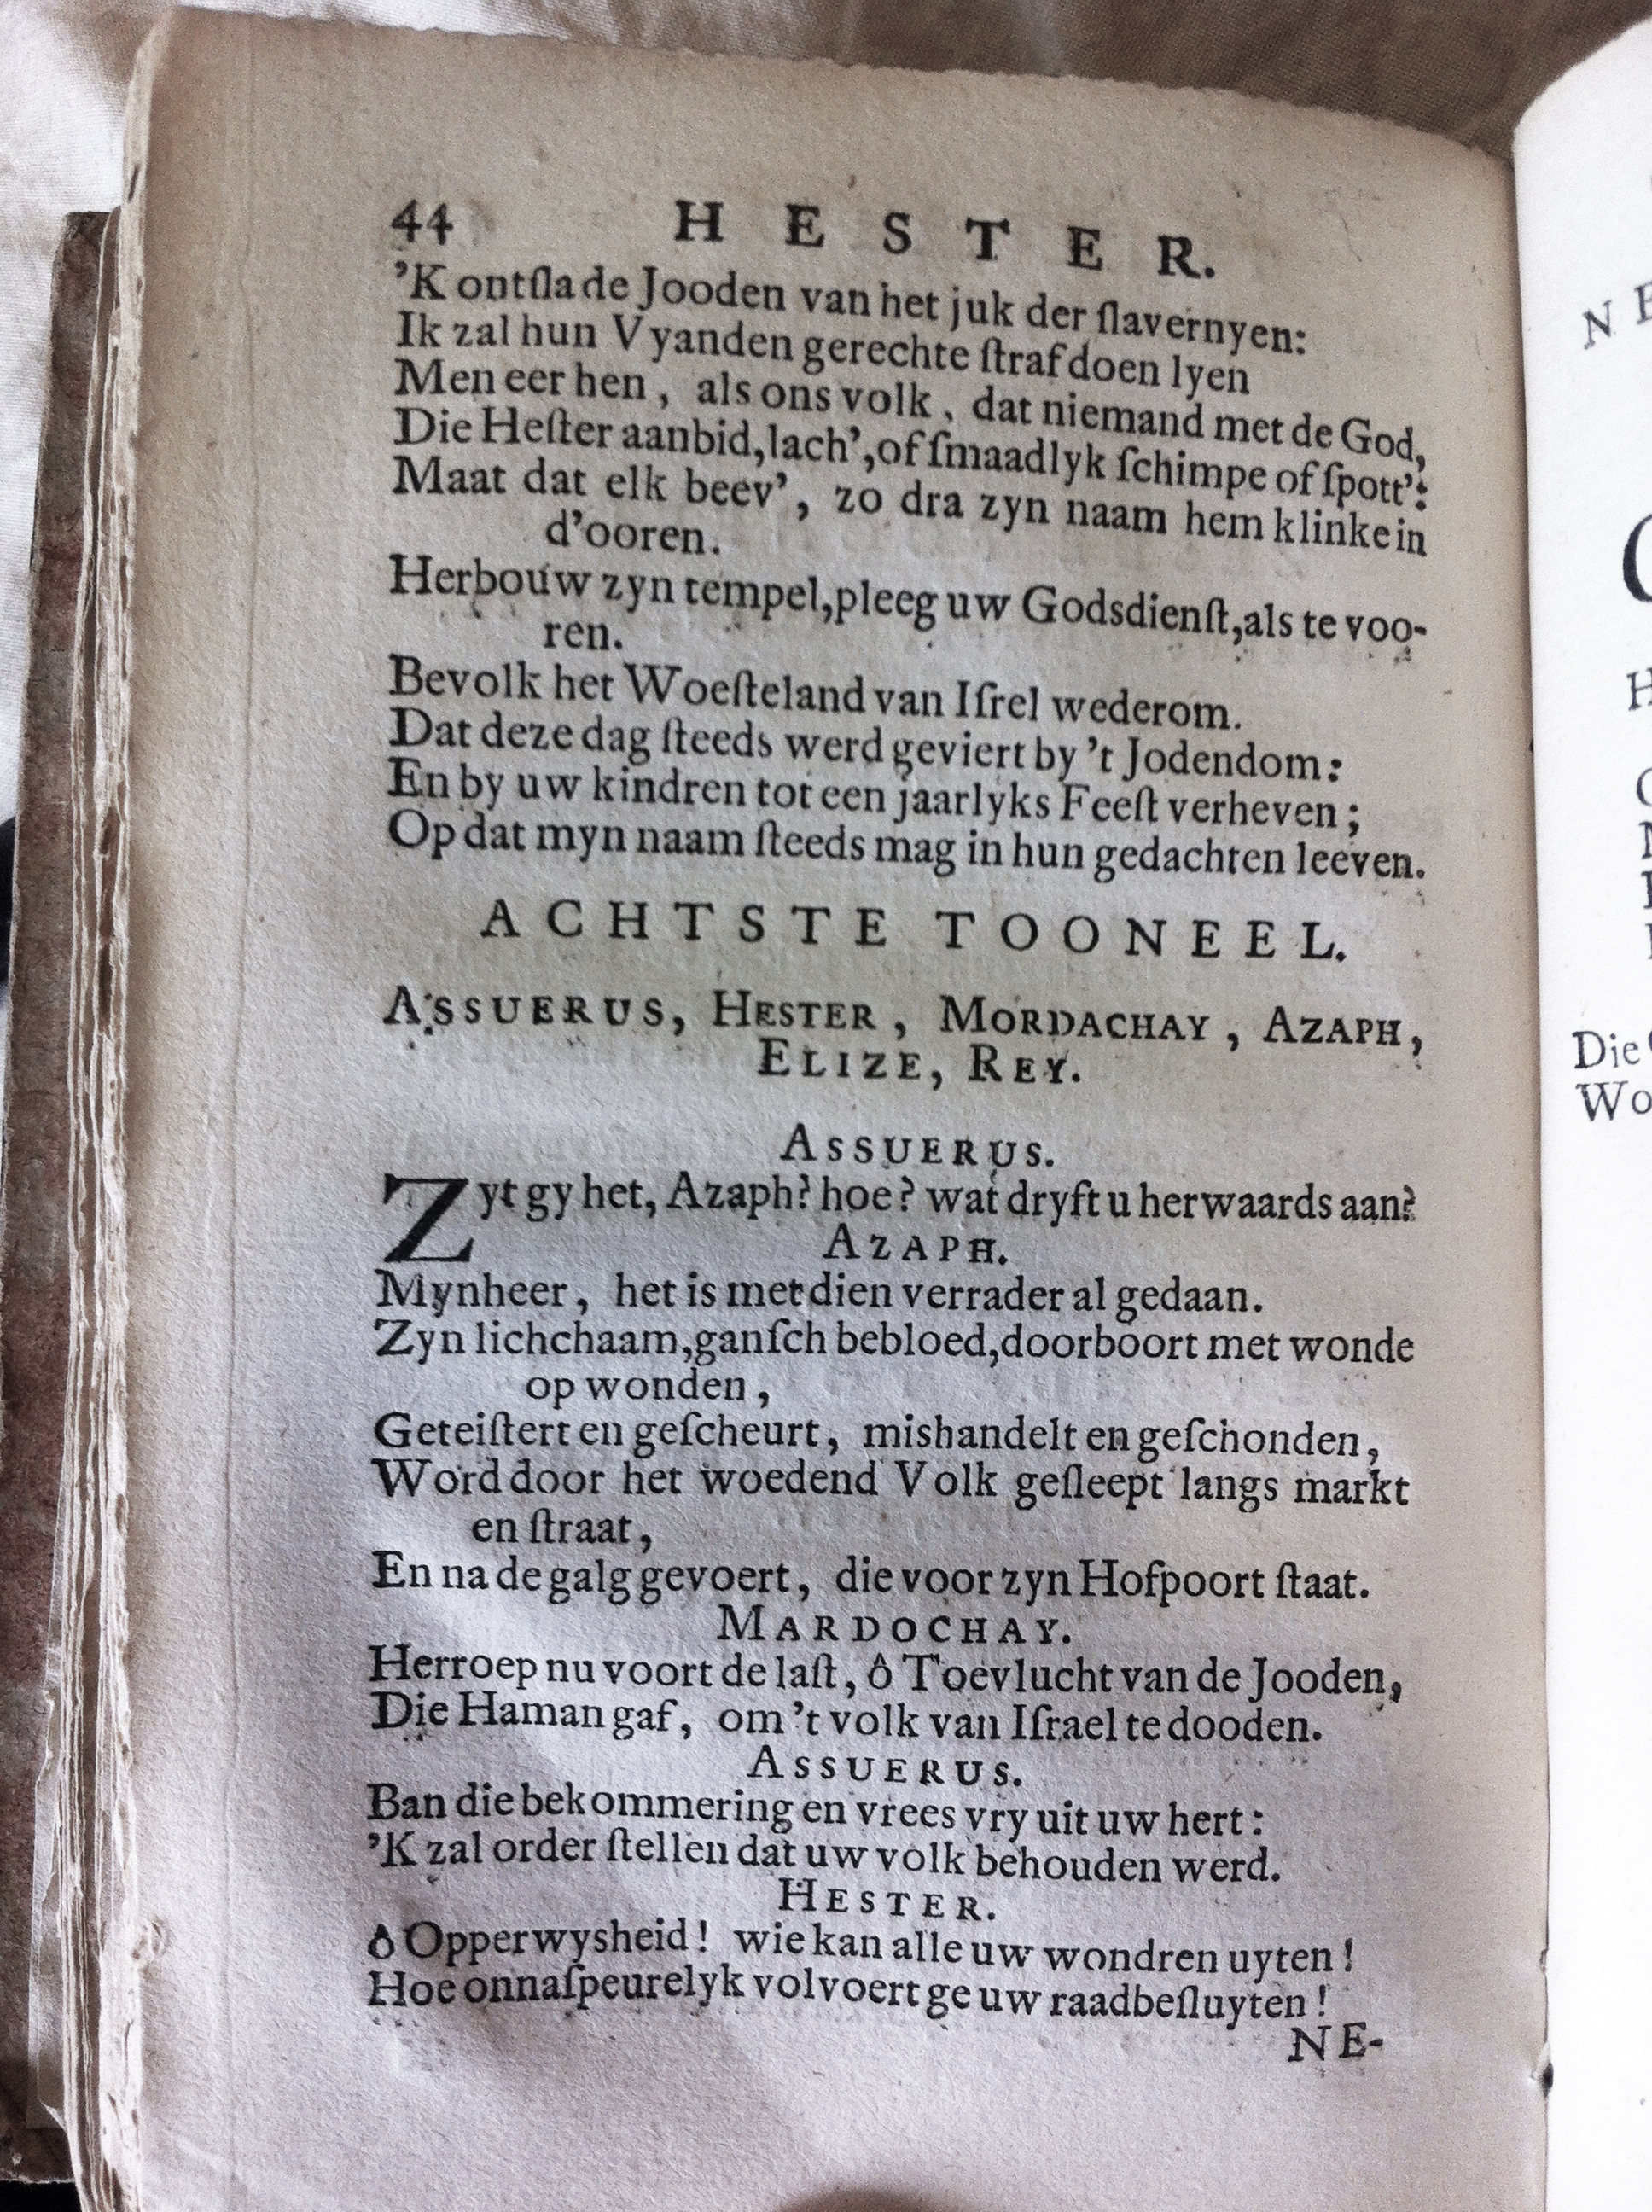 44 HESTER.
'K ontſla de Jooden van het juk der ſlavernyen:
Ik zal hun Vyanden gerechte ſtraf doen lyen
Men eer hen, als ons volk, dat niemand met de God,
Die Heſter aanbid, lach', of ſmaadlyk ſchimpe of ſpott':
Maat dat elk beev', zo dra zyn naam hem klinke in
d'ooren.
Herbouw zyn tempel, pleeg uw Godsdienſt, als te voo-
ren.
Bevolk het Woeſteland van Iſrel wederom.
Dat deze dag ſteeds werd geviert by 't Jodendom:
En by uw kindren tot een jaarlyks Feeſt verheven;
Op dat myn naam ſteeds mag in hun gedachten leeven.
ACHTSTE TOONEEL.
ASSUERUS, HESTER, MORDACHAY, AZAPH,
ELIZE, REY.
ASSUERUS.
Zyt gy het, Azaph? hoe? wat dryft u herwaards aan?
AZAPH.
Mynheer, het is met dien verrader al gedaan.
Zyn lichchaam, ganſch bebloed, doorboort met wonde
op wonden,
Geteiſtert en geſcheurt, mishandelt en geſchonden,
Word door het woedend Volk geſleept langs markt
en ſtraat,
En na de galg gevoert, die voor zyn Hofpoort ſtaat.
MARDOCHAY.
Herroep nu voort de laſt, ô Toevlucht van de Jooden,
Die Haman gaf, om 't volk van Iſrael te dooden.
ASSUERUS.
Ban die bekommering en vrees vry uit uw hert:
'K zal order ſtellen dat uw volk behouden werd.
HESTER.
ô Opperwysheid! wie kan alle uw wondren uyten!
Hoe onnaſpeurelyk volvoert ge uw raadbeſluyten!
NE-
Die